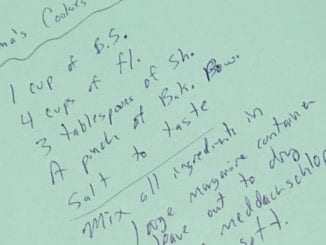 Cookies
1 cup of B.S.
4 cups of fl.
3 tablespoons of Sh.
A pinch of B.k. Bow.
Salt to taste
Mix all ingredients in
large margarine container
leave out to dry
meddachschlop